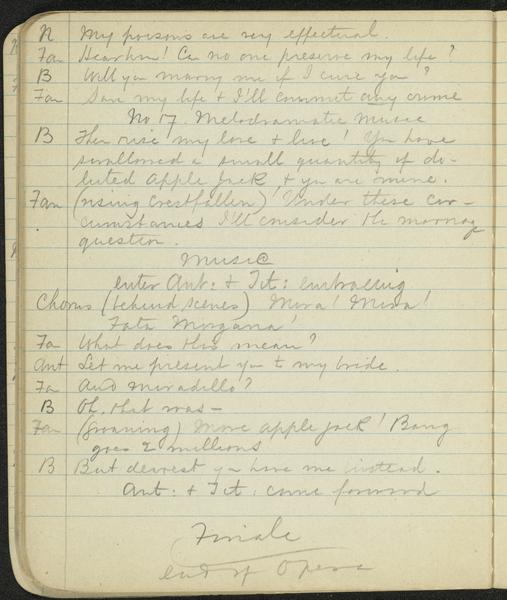 N My poisons are very effectual.
Fan Hearken! Can no one preserve my life?
B Will you marry me if I cure you?
Fan Save my life & I'll commit any crime
No 17. Melodramatic Music
B Then rise my love & live! You have
swallowed a small quantity of di-
luted Apple Jack, & you are mine.
Fan (rising crestfallen) Under these cir-
cumstances I'll consider the marriage
question.
Music
enter Ant: & Tit: embracing
Chorus (behind scenes) Mira! Mira!
Fata Morgana!
Fa What does this mean?
Ant Let me present you to my bride.
Fa And Miradillo?
B Oh, that was—
Fan (groaning) More apple jack! Bang
goes 2 millions
B But dearest you have me instead.
Ant: & Tit: come forward
Finale
end of Opera